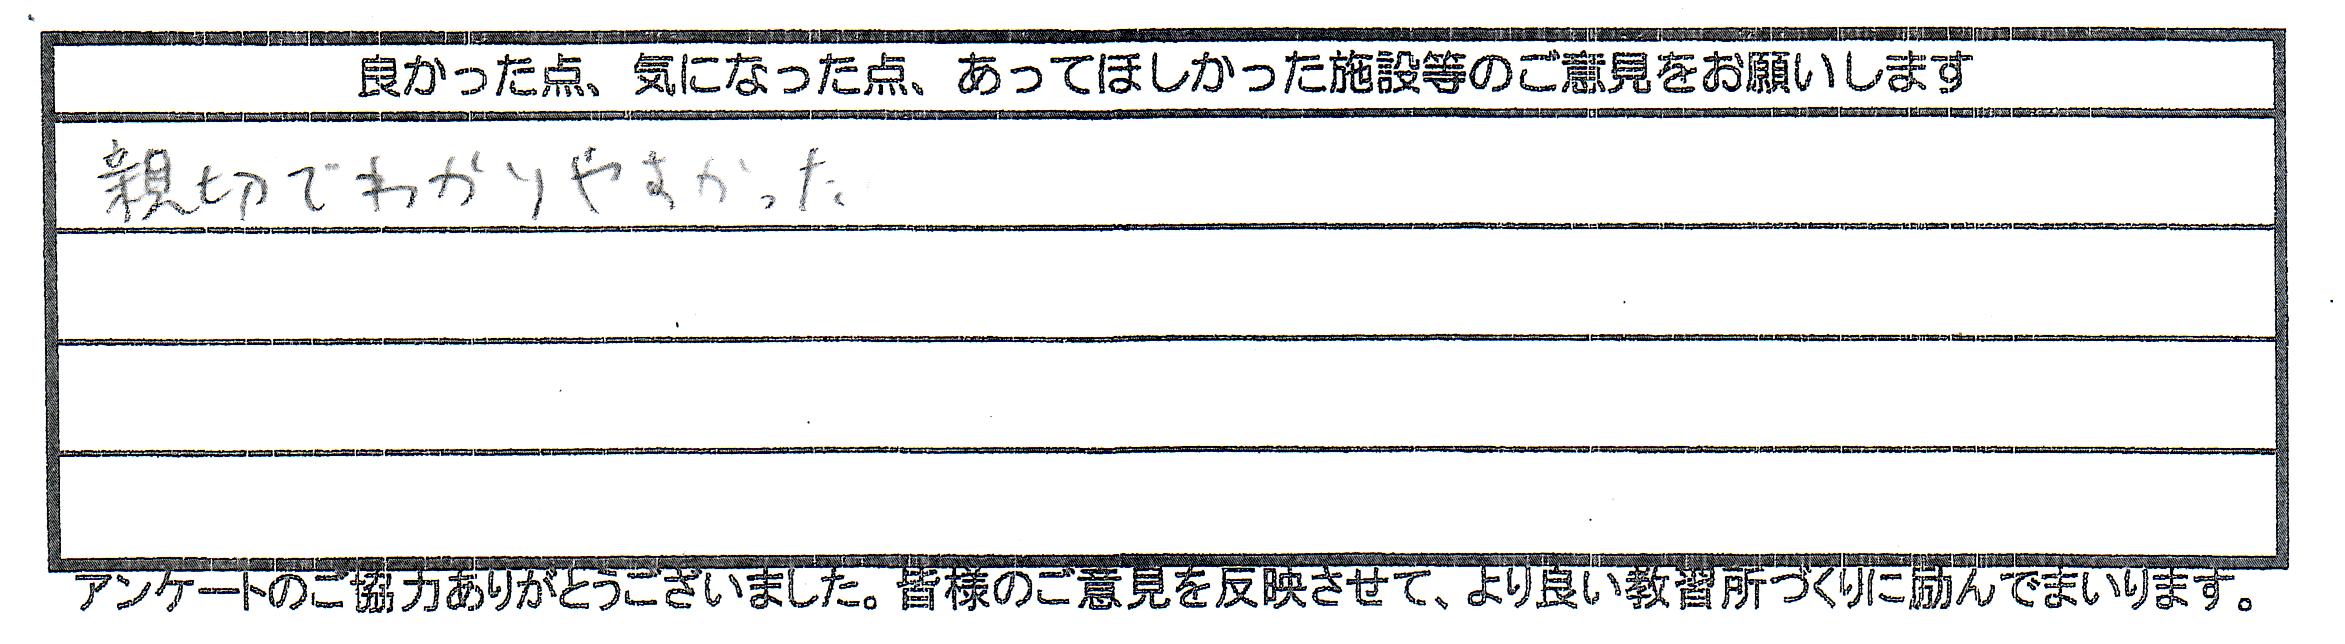 良かった点、気になった点、あってほしかった施設等のご意見をお願いします
親切でわかりやすかった
アンケートのご協力ありがとうございました。皆様のご意見を反映させて、より良い教習所づくりに励んでまいります。